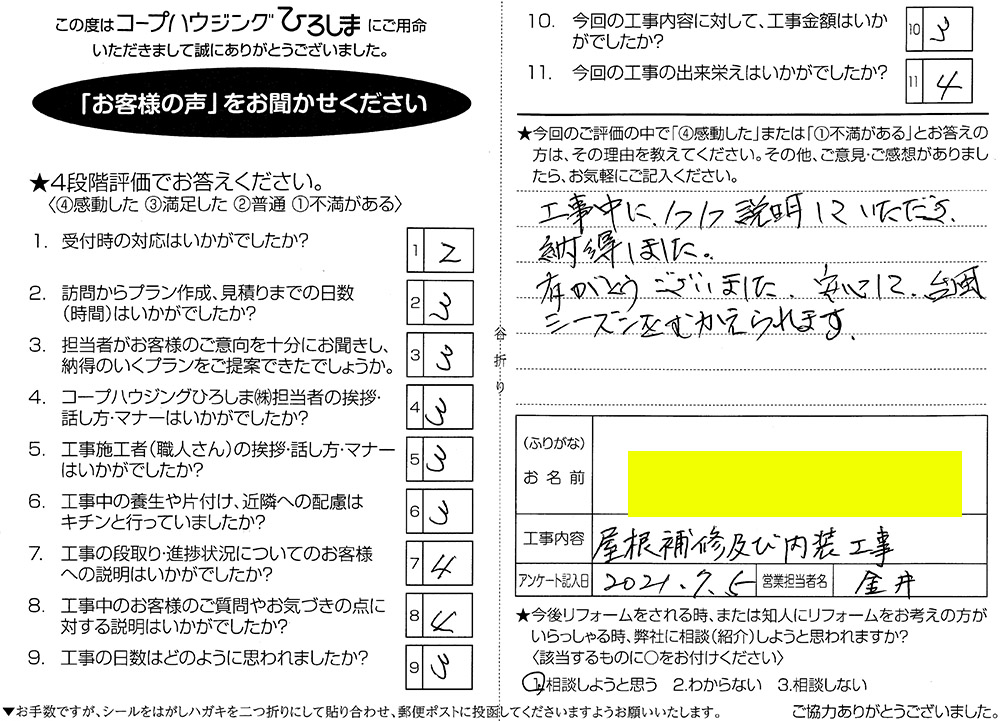 この度はコープハウジングひろしまにご用命
いただきまして誠にありがとうございました。
「お客様の声」をお聞かせください
★4段階評価でお答えください。
〈④感動した ③満足した ②普通 ①不満がある〉
1. 受付時の対応はいかがでしたか？
1 2
2. 訪問からプラン作成、見積りまでの日数
（時間）はいかがでしたか？
2 3
3. 担当者がお客様のご意向を十分にお聞きし、
納得のいくプランをご提案できたでしょうか。
3 3
4. コープハウジングひろしま㈱担当者の挨拶・
話し方・マナーはいかがでしたか？
4 3
5. 工事施工者（職人さん）の挨拶・話し方・マナー
はいかがでしたか？
5 3
6. 工事中の養生や片付け、近隣への配慮は
キチンと行っていましたか？
6 3
7. 工事の段取り・進捗状況についてのお客様
への説明はいかがでしたか？
7 4
8. 工事中のお客様のご質問やお気づきの点に
対する説明はいかがでしたか？
8 4
9. 工事の日数はどのように思われましたか？
9 3
▼お手数ですが、シールをはがしハガキを二つ折りにして貼り合わせ、郵便ポストに投函してくださいますようお願いいたします。
谷折り
10. 今回の工事内容に対して、工事金額はいか
がでしたか？
10 3
11. 今回の工事の出来栄えはいかがでしたか？
11 4
★今回のご評価の中で「④感動した」または「①不満がある」とお答えの
方は、その理由を教えてください。その他、ご意見・ご感想がありまし
たら、お気軽にご記入ください。
工事中に、1つ1つ説明していただき、
納得しました。
有がとうございました。安心して、台風
シーズンをむかえられます。
（ふりがな）
お名前
工事内容 屋根補修及び内装工事
アンケート記入日 2021.7.5 営業担当者名 金井
★今後リフォームをされる時、または知人にリフォームをお考えの方が
いらっしゃる時、弊社に相談（紹介）しようと思われますか？
〈該当するものに○をお付けください〉
1.相談しようと思う 2.わからない 3.相談しない
ご協力ありがとうございました。